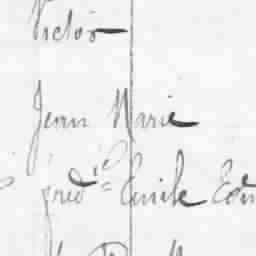 Victor
Jean Marie
fred ic Emile Edm